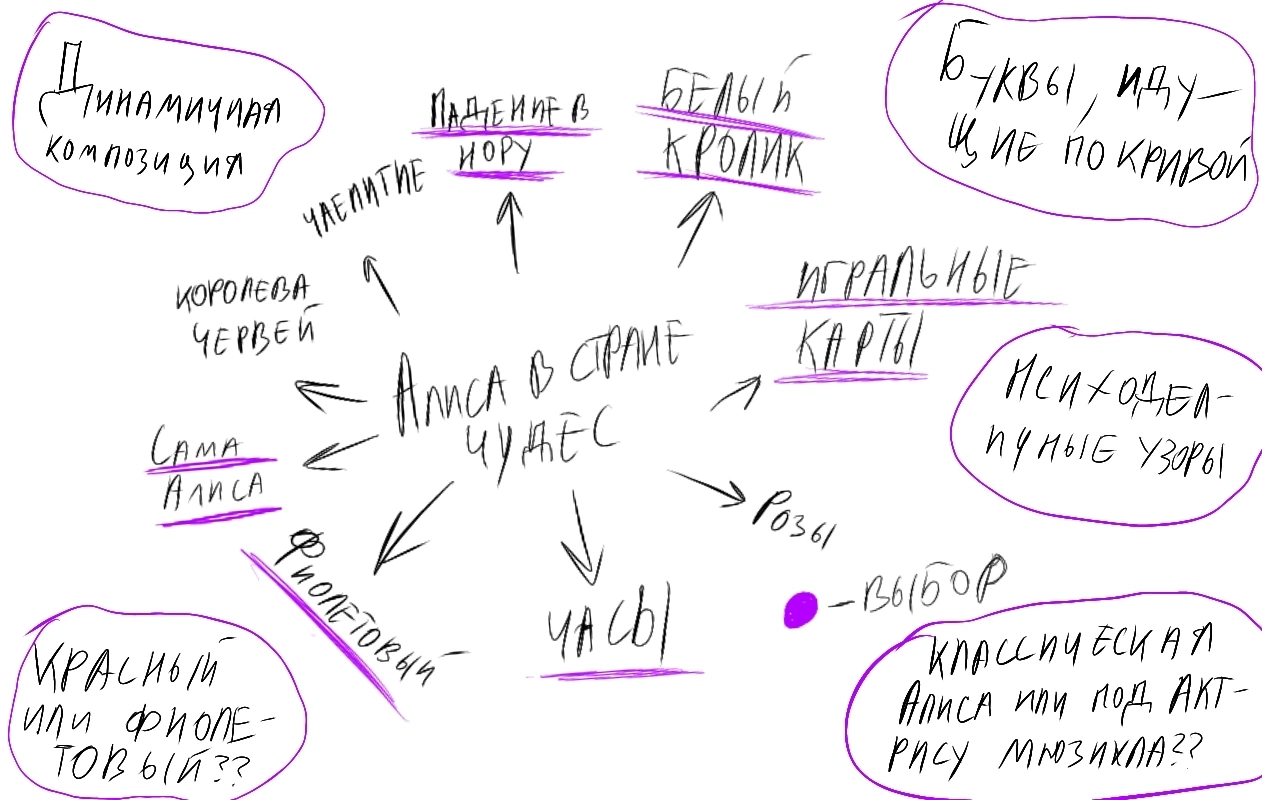 Динамичная
композиция
Падение в
нору
Белый
кролик
Буквы, иду-
щие по кривой
чаепитие
королева
червей
игральные
карты
Алиса в стране
чудес
Психодел-
ичные узоры
Сама
Алиса
Розы
Фиолетовый
часы
- выбор
Красный
или фиоле-
товый??
классическая
Алиса или под акт-
рису мюзикла??